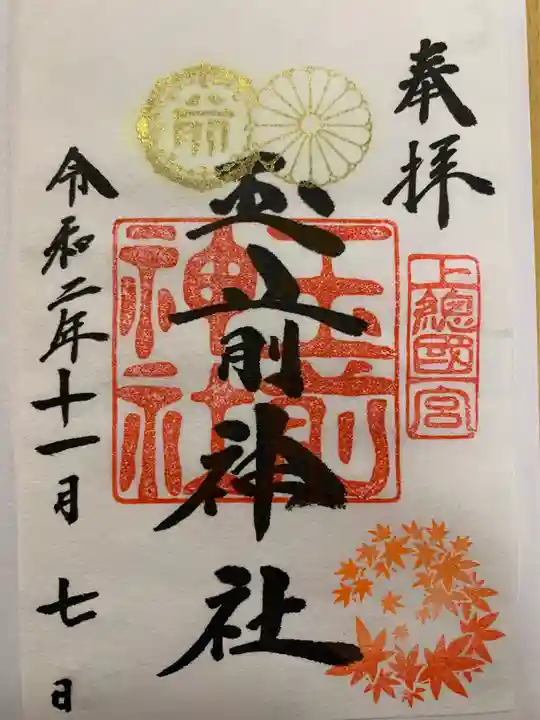 奉拝
上總國一宮
玉前神社
玉前神社
令和二年十一月 七 日